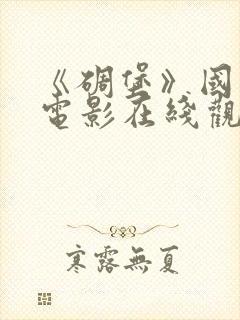 《碉堡》國
電影在綫觀
寒露無夏